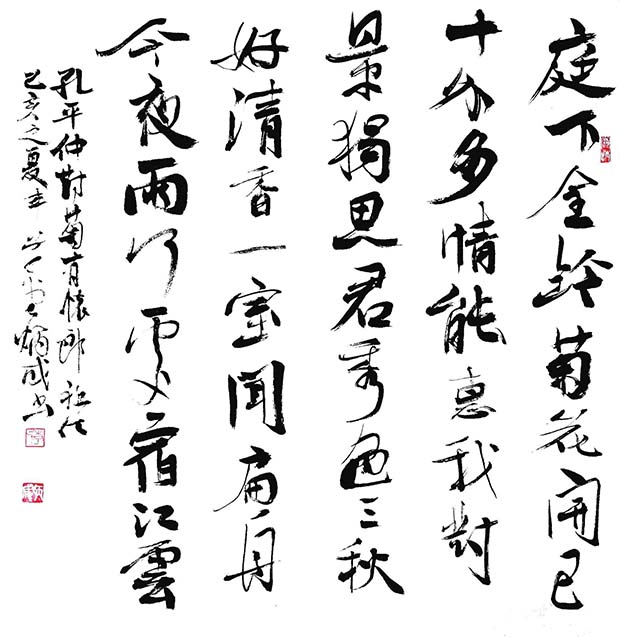 庭下金鈴菊花開已
十分多情能惠我對
景獨思君秀色三秋
好清香一室聞扁舟
今夜雨何處宿江雲
孔平仲對菊有懷郎祖仁
己亥之夏